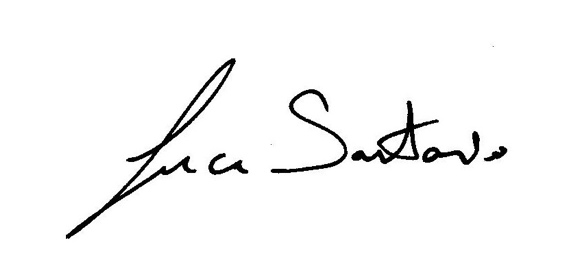 Luca Santoro